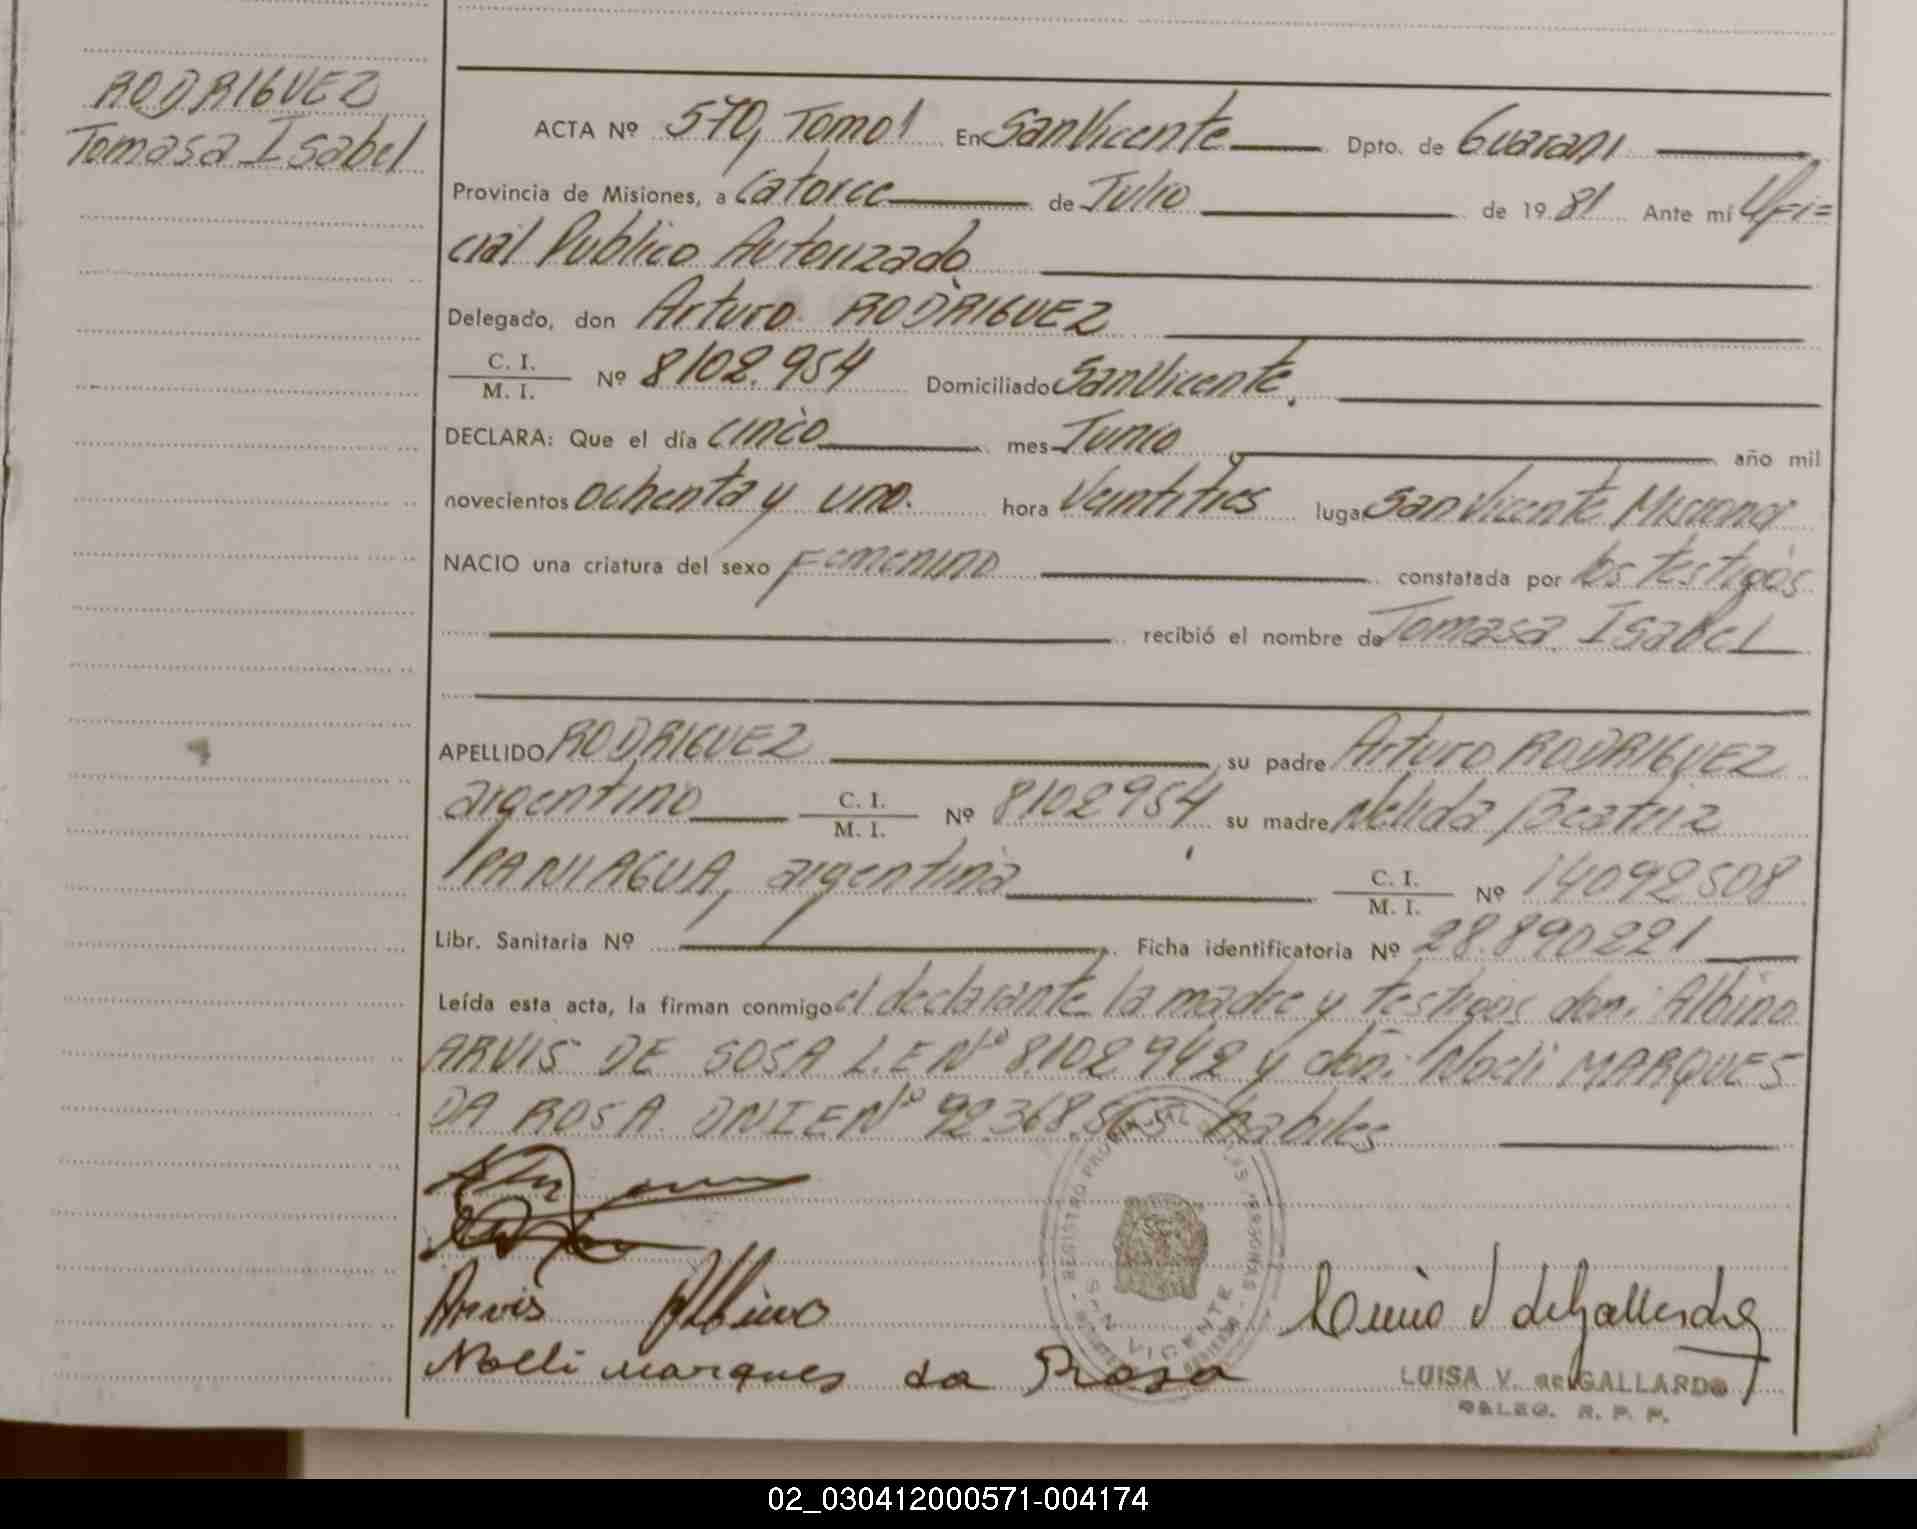 RODRIGUEZ
Tomasa Isabel
ACTA Nº 570, Tomo 1 En San Vicente Dpto. de Guarani
Provincia de Misiones, a Catorce de Julio de 1981 Ante mí Ofi=
cial Publico Autorizado
Delegado, don Arturo RODRIGUEZ
C. I. / M. I. Nº 8102.954 Domiciliado San Vicente.
DECLARA: Que el día cinco mes Junio año mil
novecientos ochenta y uno. hora Veintitres lugar San Vicente Misiones
NACIO una criatura del sexo Femenino constatada por los testigos
recibió el nombre de Tomasa Isabel
APELLIDO RODRIGUEZ su padre Arturo RODRIGUEZ
argentino C. I. / M. I. Nº 8102954 su madre Nelida Beatriz
PANIAGUA, argentina C. I. / M. I. Nº 14092508
Libr. Sanitaria Nº Ficha identificatoria Nº 28.890221
Leída esta acta, la firman conmigo el declarante la madre y testigos don: Albino
ARVIS DE SOSA L.E Nº 8.102.942 y don: Noeli MARQUES
DA ROSA DNIE Nº 92.368.565 habiles
Arvis Albino
Noeli Marques da Rosa
SAN VICENTE
LUISA V. de GALLARDO
DELEG. R. P. P.
02_030412000571-004174